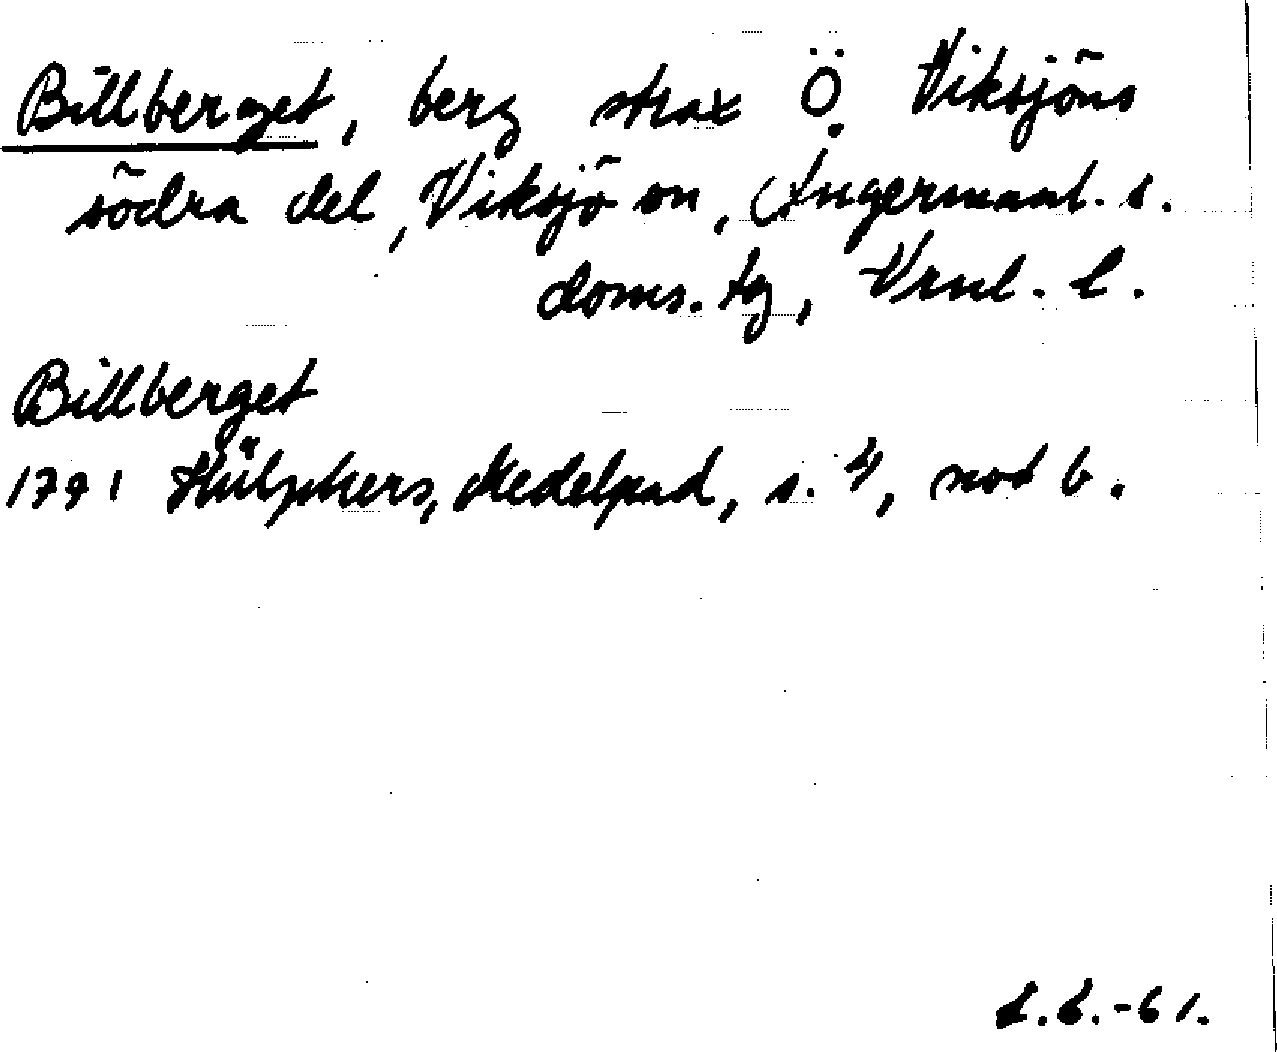 Billberget, berg strax Ö. Viksjöns
södra del, Viksjö sn, Ångermanl. s.
doms. tg, Vrnl. l.
Billberget
1771 Hülphers, Medelpad, s. 4, not b.